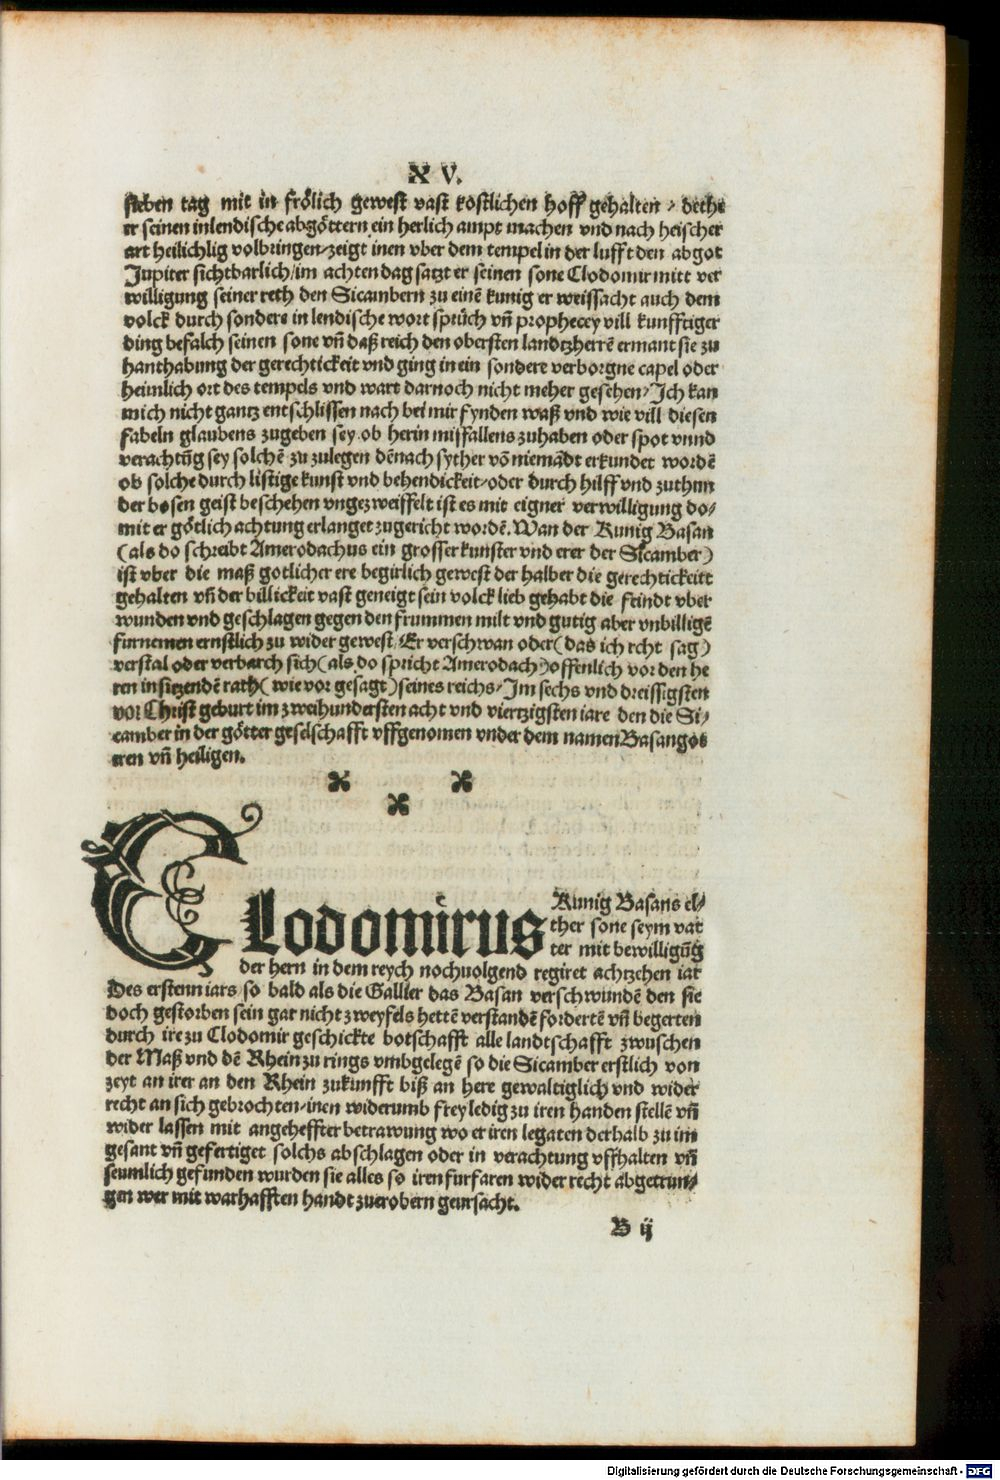 XV.
sieben tag mit in frölich gewest vast köstlichen hoff gehalten / dethe
er seinen inlendische abgöttern ein herlich ampt machen vnd nach heischer
art heilichlig volbringen/zeigt inen vber dem tempel in der lufft den abgot
Jupiter sichtbarlich/im achten dag satzt er seinen sone Clodomir mitt ver
willigung seiner reth den Sicambern zu einē kunig er weissacht auch dem
volck durch sondere in lendische wort sprüch vñ prophecey vill kunfftiger
ding befalch seinen sone vñ daß reich den obersten landtzherrē ermant sie zu
hanthabung der gerechtickeit vnd ging in ein sondere verborgne capel oder
heimlich ort des tempels vnd wart darnoch nicht meher gesehen/Ich kan
mich nicht gantz entschlissen nach bei mir fynden waß vnd wie vill diesen
fabeln glaubens zugeben sey ob herin misfallens zuhaben oder spot vnnd
verachtūg sey solchē zu zulegen dēnach syther vō niemādt erkundet wordē
ob solche durch listige kunst vnd behendickeit/oder durch hilff vnd zuthun
der bosen geist beschehen vngezweiffelt ist es mit eigner verwilligung do/
mit er götlich achtung erlanget zugericht wordē. Wan der Kunig Basan
(als do schreibt Amerodachus ein grosser kunster vnd erer der Sicamber)
ist vber die maß gotlicher ere begirlich gewest der halber die gerechtickeitt
gehalten vñ der billickeit vast geneigt sein volck lieb gehabt die feindt vber
wunden vnd geschlagen gegen den frummen milt vnd gutig aber vnbilligē
furnemen ernstlich zu wider gewest/Er verschwan oder(das ich rcht sag)
verstal oder verbarch sich(als do spricht Amerodach)offenlich vor den he
ren in sitzendē rath(wie vor gesagt)seines reichs/Im sechs vnd dreissigsten
vor Christ geburt im zweihundersten acht vnd viertzigsten iare den die Si/
camber in der götter geselschafft vffgenomen vnder dem namen Basangot
eren vñ heiligen.
Clodomirus Kunig Basans el/
ther sone seym vat
ter mit bewilligūg
der hern in dem reych nochuolgend regiret achtzehen iar
Des erstenn iars so bald als die Gallier das Basan verschwundē den sie
doch gestorben sein gar nicht zweyfels hettē verstandē fordertē vñ begerten
durch ire zu Clodomir geschickte botschafft alle landtschafft zwuschen
der Maß vnd dē Rhein zu rings vmbgelegē so die Sicamber erstlich von
zeyt an irer an den Rhein zukunfft biß an here gewaltiglich vnd wider
recht an sich gebrochten/inen widerumb frey ledig zu iren handen stellē vñ
wider lassen mit angeheffter betrawung wo er iren legaten derhalb zu im
gesant vñ gefertiget solchs abschlagen oder in verachtung vffhalten vñ
seumlich gefunden wurden sie alles so iren furfaren wider recht abgetrun/
gen wer mit warhafften handt zuerobern geursacht.
B ij
Digitalisierung gefördert durch die Deutsche Forschungsgemeinschaft - DFG